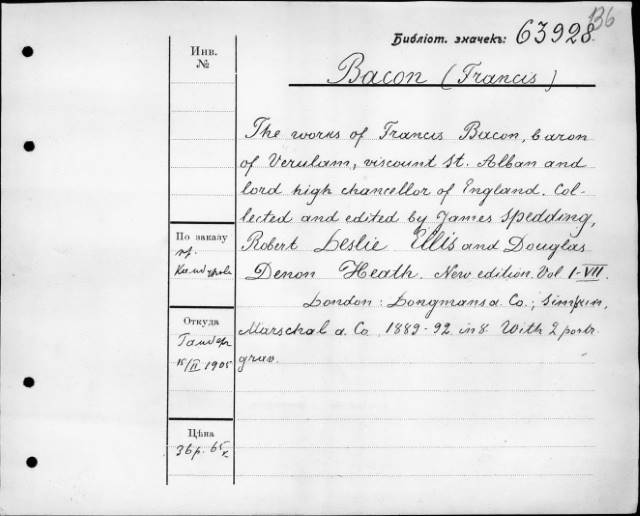 136
Библіот. значекъ: 63928.
Инв.
№
Bacon (Francis)
The works of Francis Bacon, baron
of Verulam, viscount St. Alban and
lord high chancellor of England. Col-
lected and edited by James Spedding,
Robert Leslie Ellis and Douglas
Denon Heath. New edition. Vol I-VII.
London: Longmans a. Co.; Simpkin,
Marschal a. Co. 1889-92. in 8. With 2 portr.
grav.
По заказу
пр.
Откуда
15/II 1905
Цѣна
36 р. 65 к